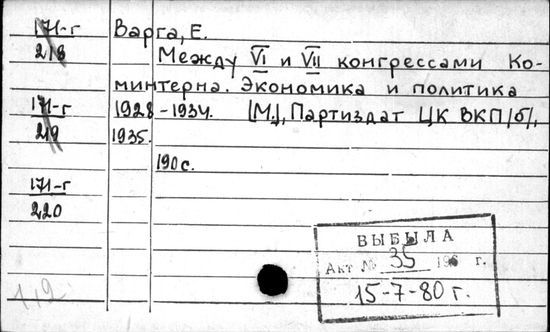 171-г
218
Варга, Е.
Между VI и VII конгрессами Ко-
минтерна. Экономика и политика
171-г
219
1928-1934. [М.], Партиздат ЦК ВКП/б/,
1935.
190 с.
171-г
220
ВЫБЫЛА
Акт № 35 198 г.
15-7-80 г.
1,2